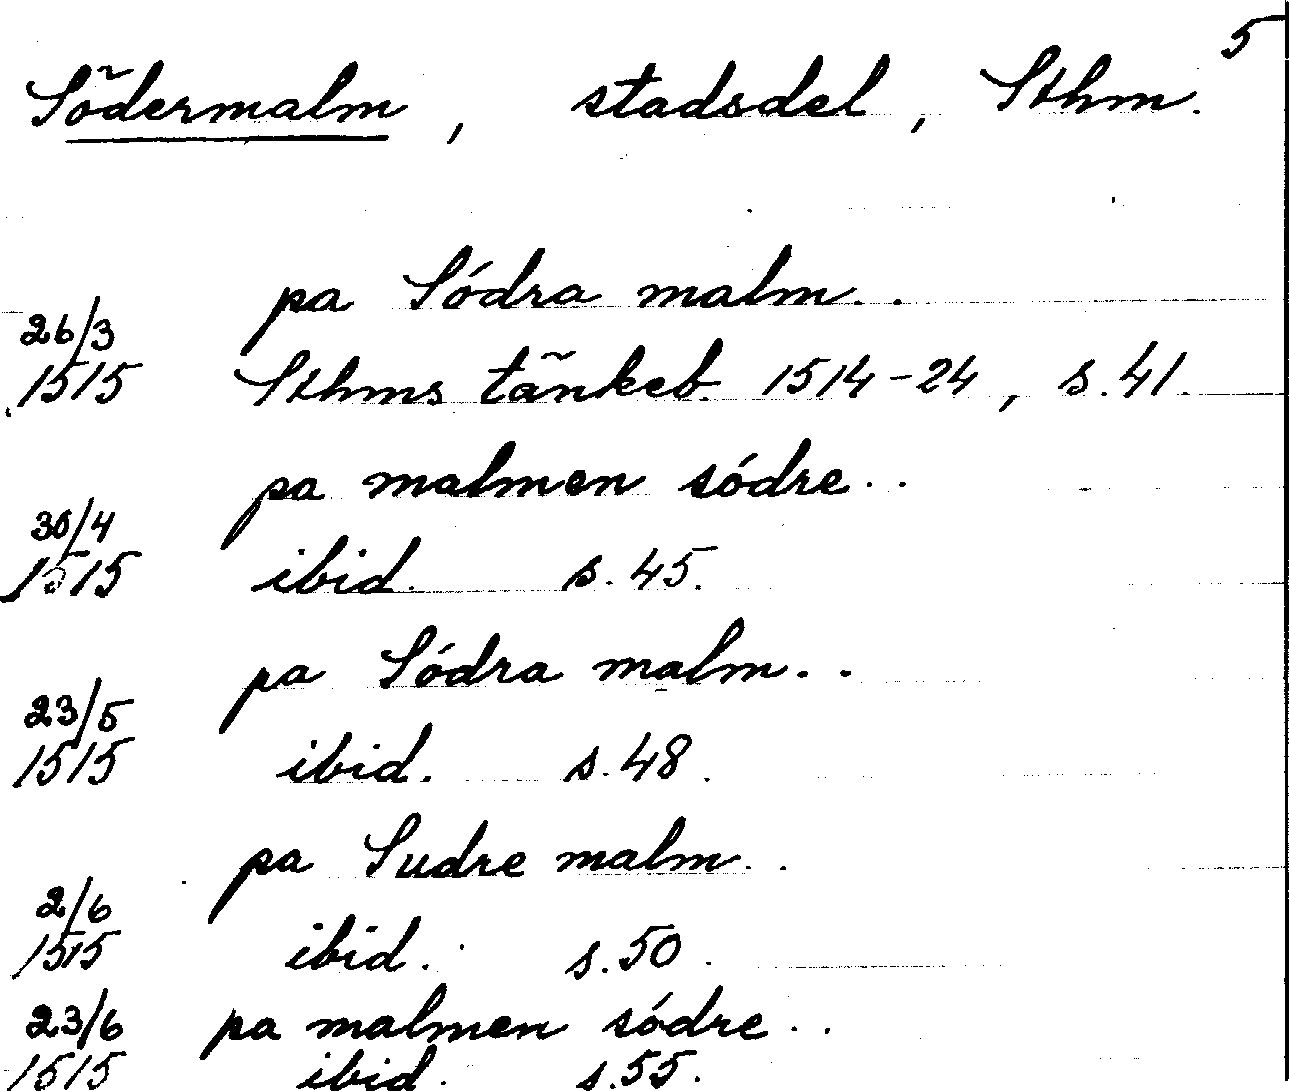 5
Södermalm, stadsdel, Sthm.
pa Sódra malm..
26/3
1515 Sthms tänkeb. 1514-24, s.41.
pa malmen sódre..
30/4
1515 ibid. s.45.
pa Sódra malm..
23/5
1515 ibid. s.48.
pa Sudre malm..
2/6
1515 ibid. s.50.
23/6 pa malmen sódre..
1515 ibid. s.55.